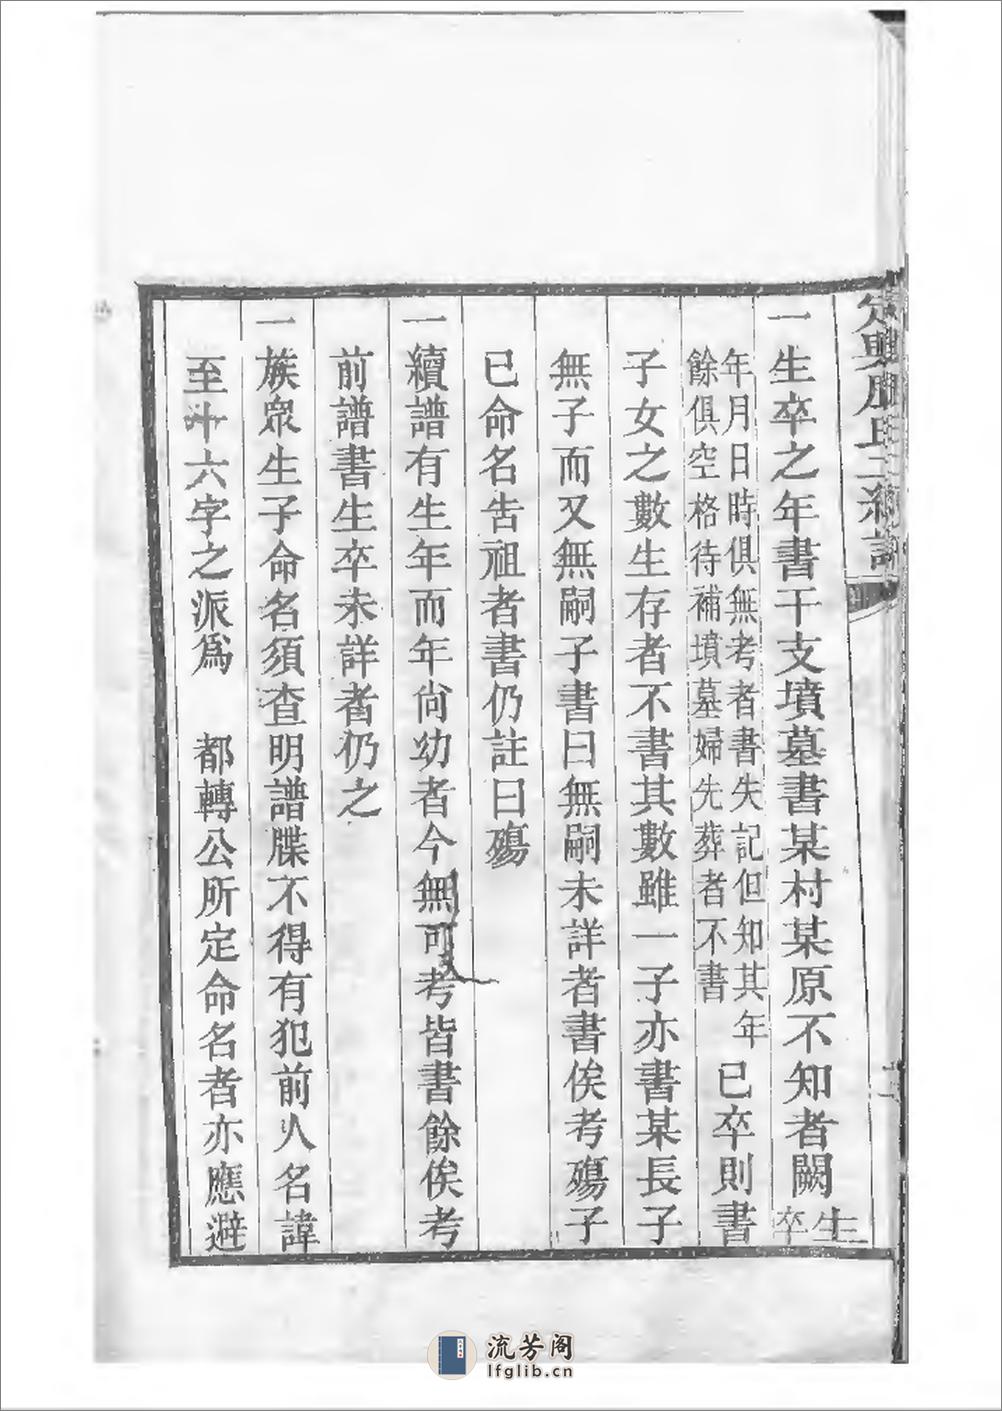 一生卒之年書干支墳墓書某村某原不知者闕生卒
年月日時俱無考者書失記但知其年
餘俱空格待補墳墓婦先葬者不書
已卒則書
子女之數生存者不書其數雖一子亦書某長子
無子而又無嗣子書曰無嗣未詳者書俟考殤子
已命名告祖者書仍註曰殤
一續譜有生年而年尙幼者今無可考皆書餘俟考
前譜書生卒未詳者仍之
一族眾生子命名須查明譜牒不得有犯前人名諱
至卄六字之派爲 都轉公所定命名者亦應避
流芳阁
lfglib.cn